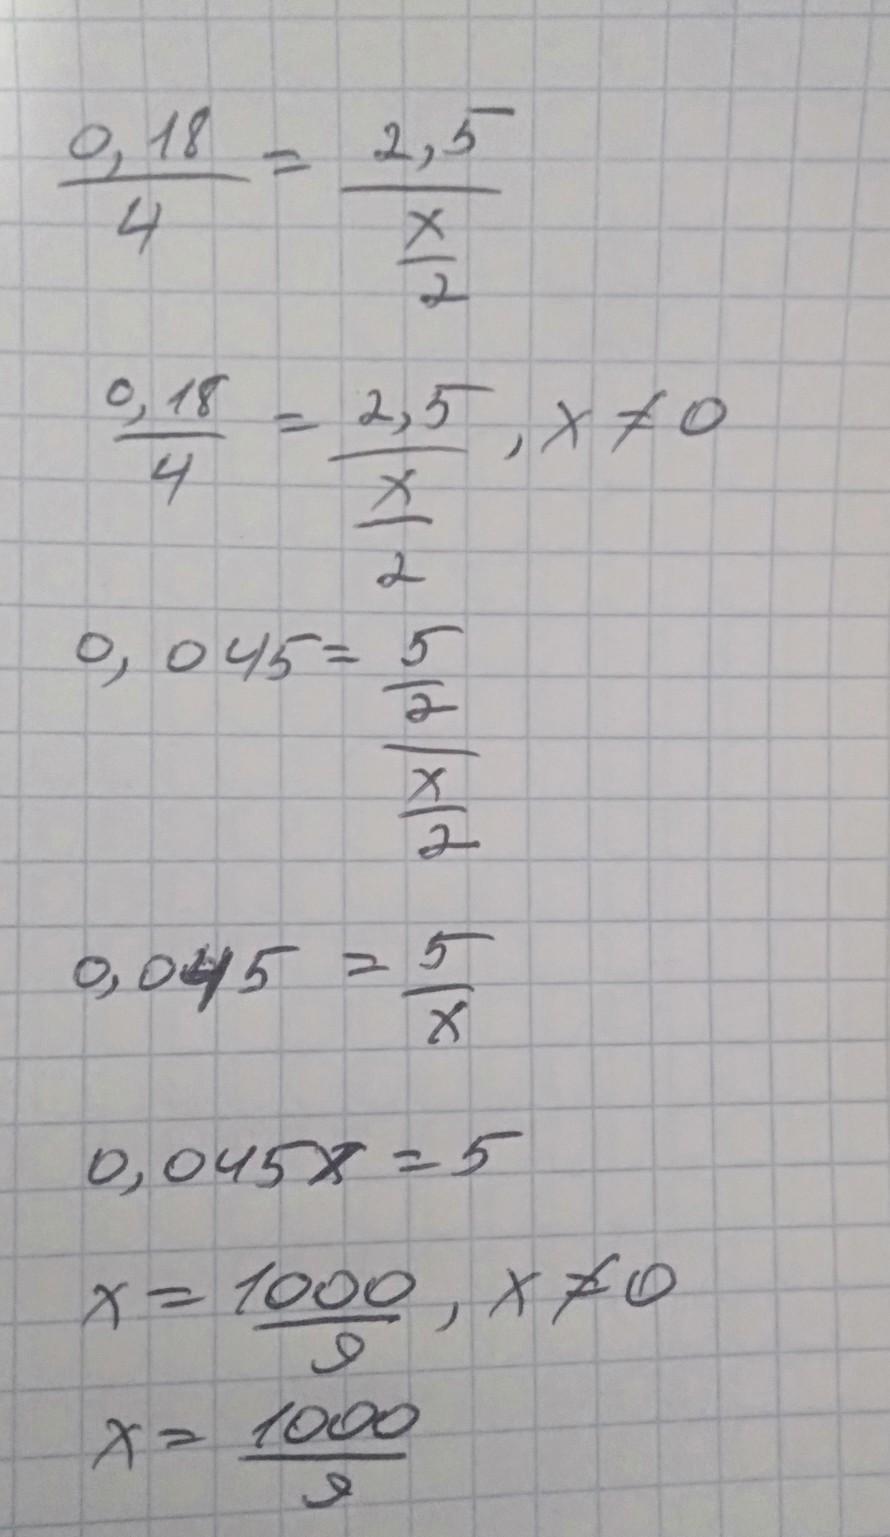 0,18/4 = 2,5/(x/2)
0,18/4 = 2,5/(x/2), x ≠ 0
0,045 = (5/2)/(x/2)
0,045 = 5/x
0,045x = 5
x = 1000/9, x ≠ 0
x = 1000/9